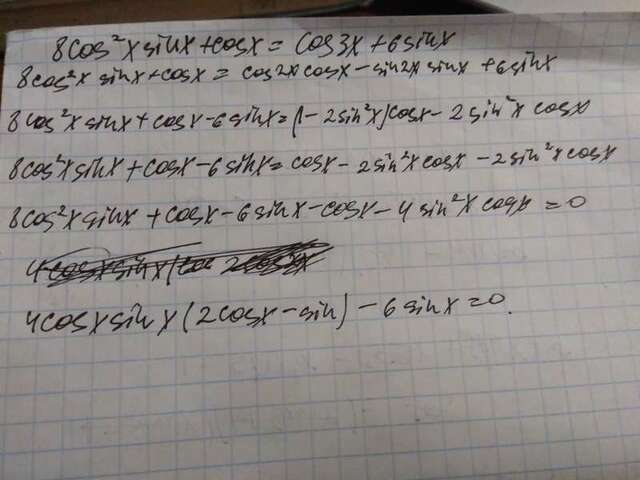 8cos²x sinx + cosx = cos3x + 6sinx
8cos²x sinx + cosx = cos2x cosx - sin2x sinx + 6sinx
8cos²x sinx + cosx - 6sinx = (1 - 2sin²x)cosx - 2sin²x cosx
8cos²x sinx + cosx - 6sinx = cosx - 2sin²x cosx - 2sin²x cosx
8cos²x sinx + cosx - 6sinx - cosx - 4sin²x cosx = 0
4cosx sinx (2cosx - sin) - 6sinx = 0.